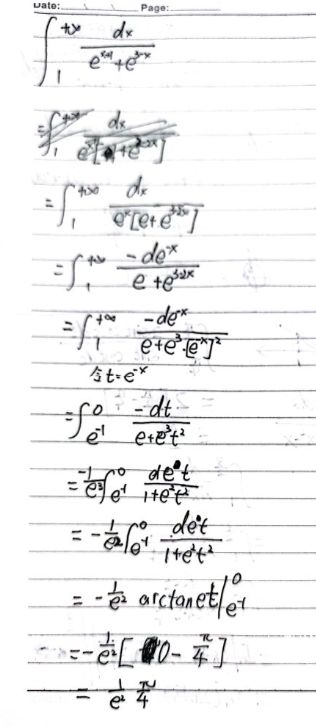 Date: Page:
∫_1^{+∞} dx / (e^{x+1} + e^{3-x})
= ∫_1^{+∞} dx / (e^x [e + e^{3-2x}])
= ∫_1^{+∞} -de^{-x} / (e + e^{3-2x})
= ∫_1^{+∞} -de^{-x} / (e + e^3·[e^{-x}]^2)
令t=e^{-x}
= ∫_{e^{-1}}^0 -dt / (e + e^3t^2)
= -1/e^3 ∫_{e^{-1}}^0 det / (1 + e^2t^2)
= -1/e^2 ∫_{e^{-1}}^0 det / (1 + e^2t^2)
= -1/e^2 arctanet |_{e^{-1}}^0
= -1/e^2 [0 - π/4]
= 1/e^2 π/4